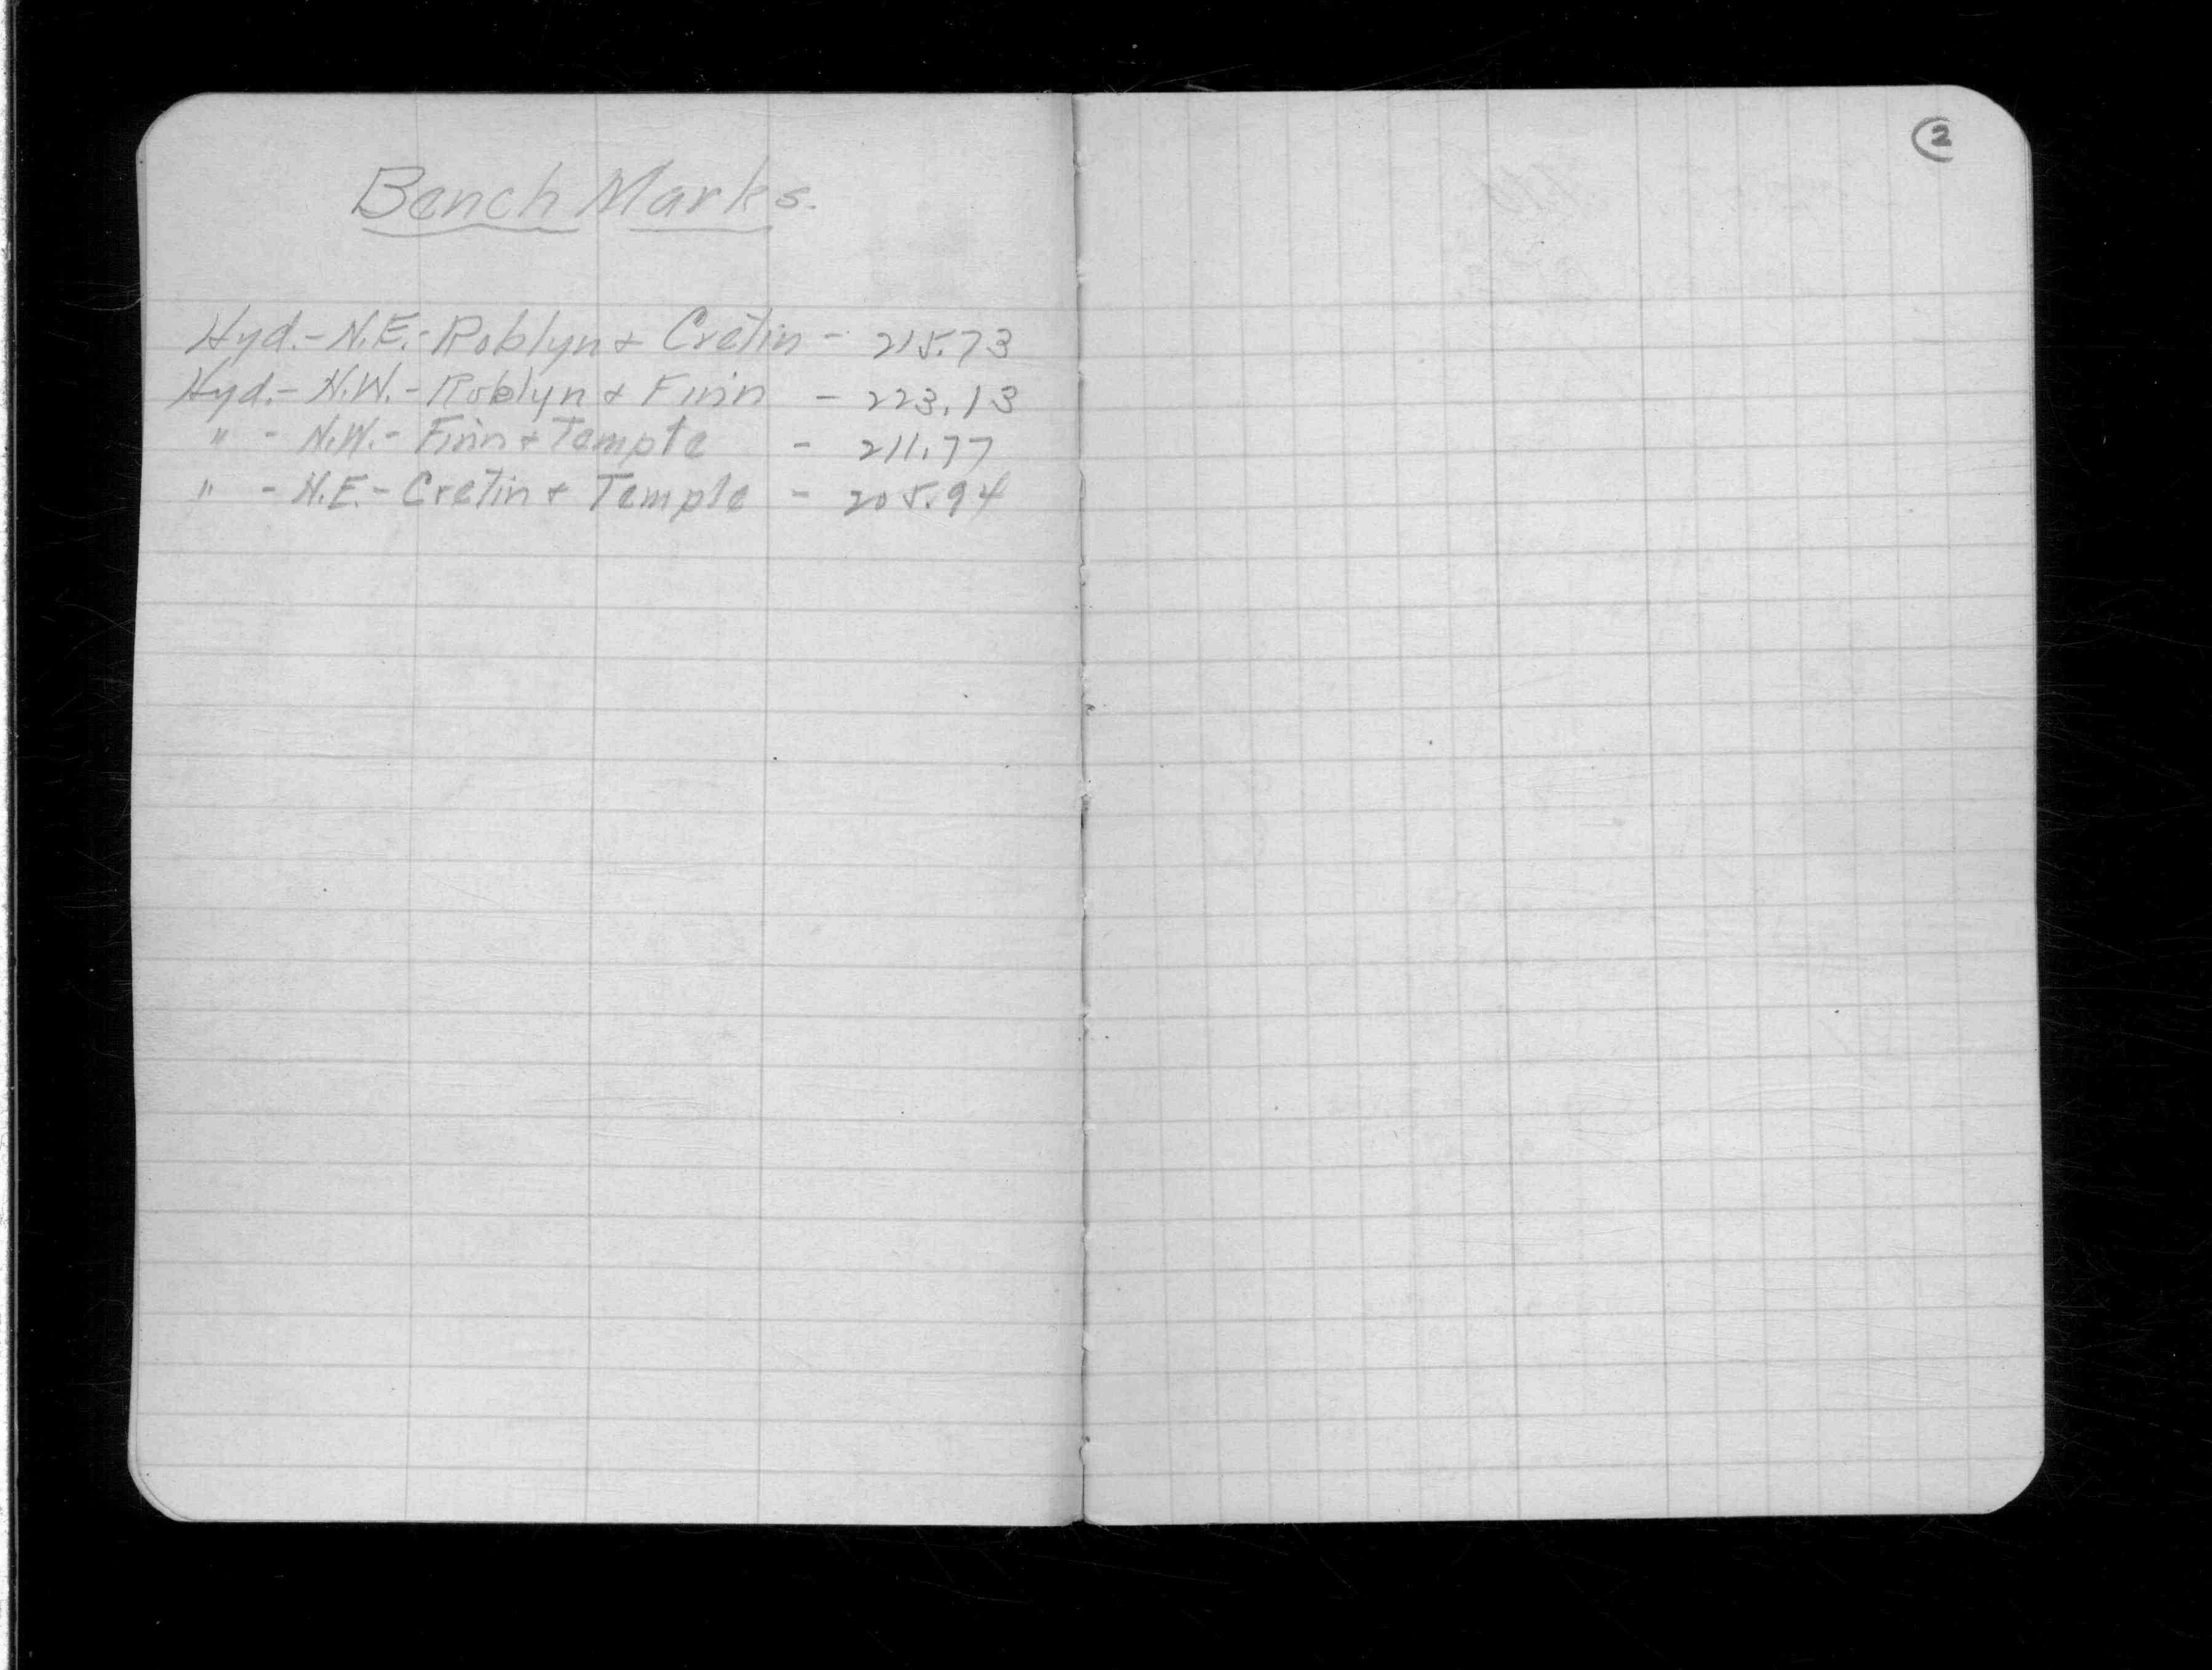 Bench Marks.
Hyd.- N.E.- Roblyn & Cretin - 215.73
Hyd.- N.W.- Roblyn & Finn - 223.13
" - N.W.- Finn & Temple - 211.77
" - N.E.- Cretin & Temple - 205.94
2